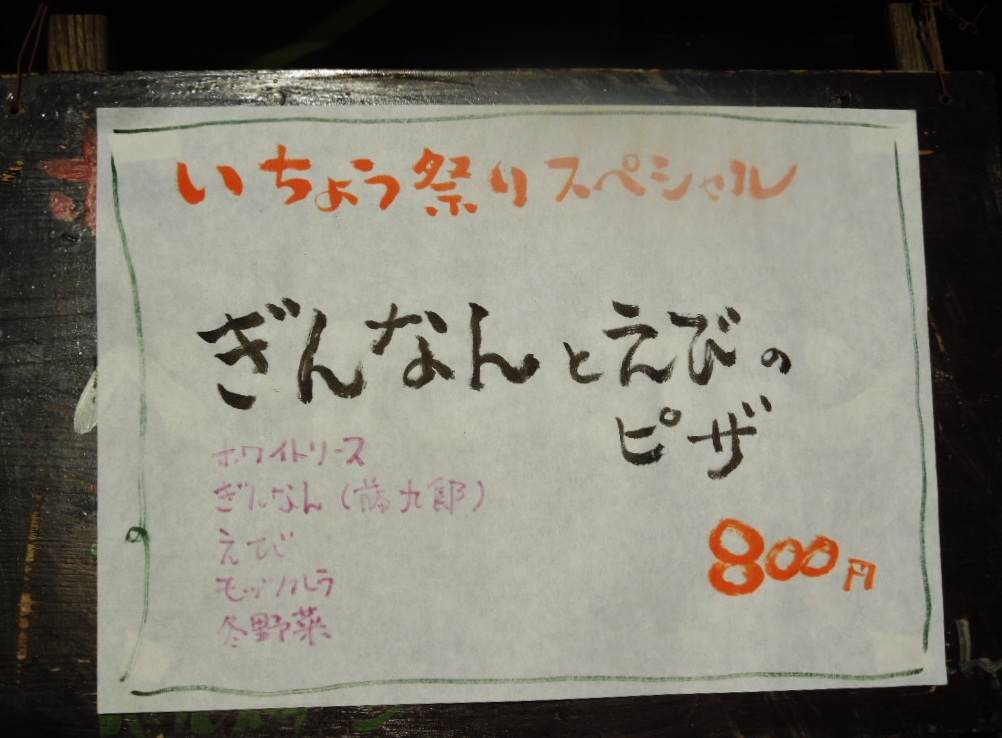 いちょう祭りスペシャル
ぎんなんとえびの
ピザ
ホワイトソース
ぎんなん(藤九郎)
えび
モッツァレラ
冬野菜
800円